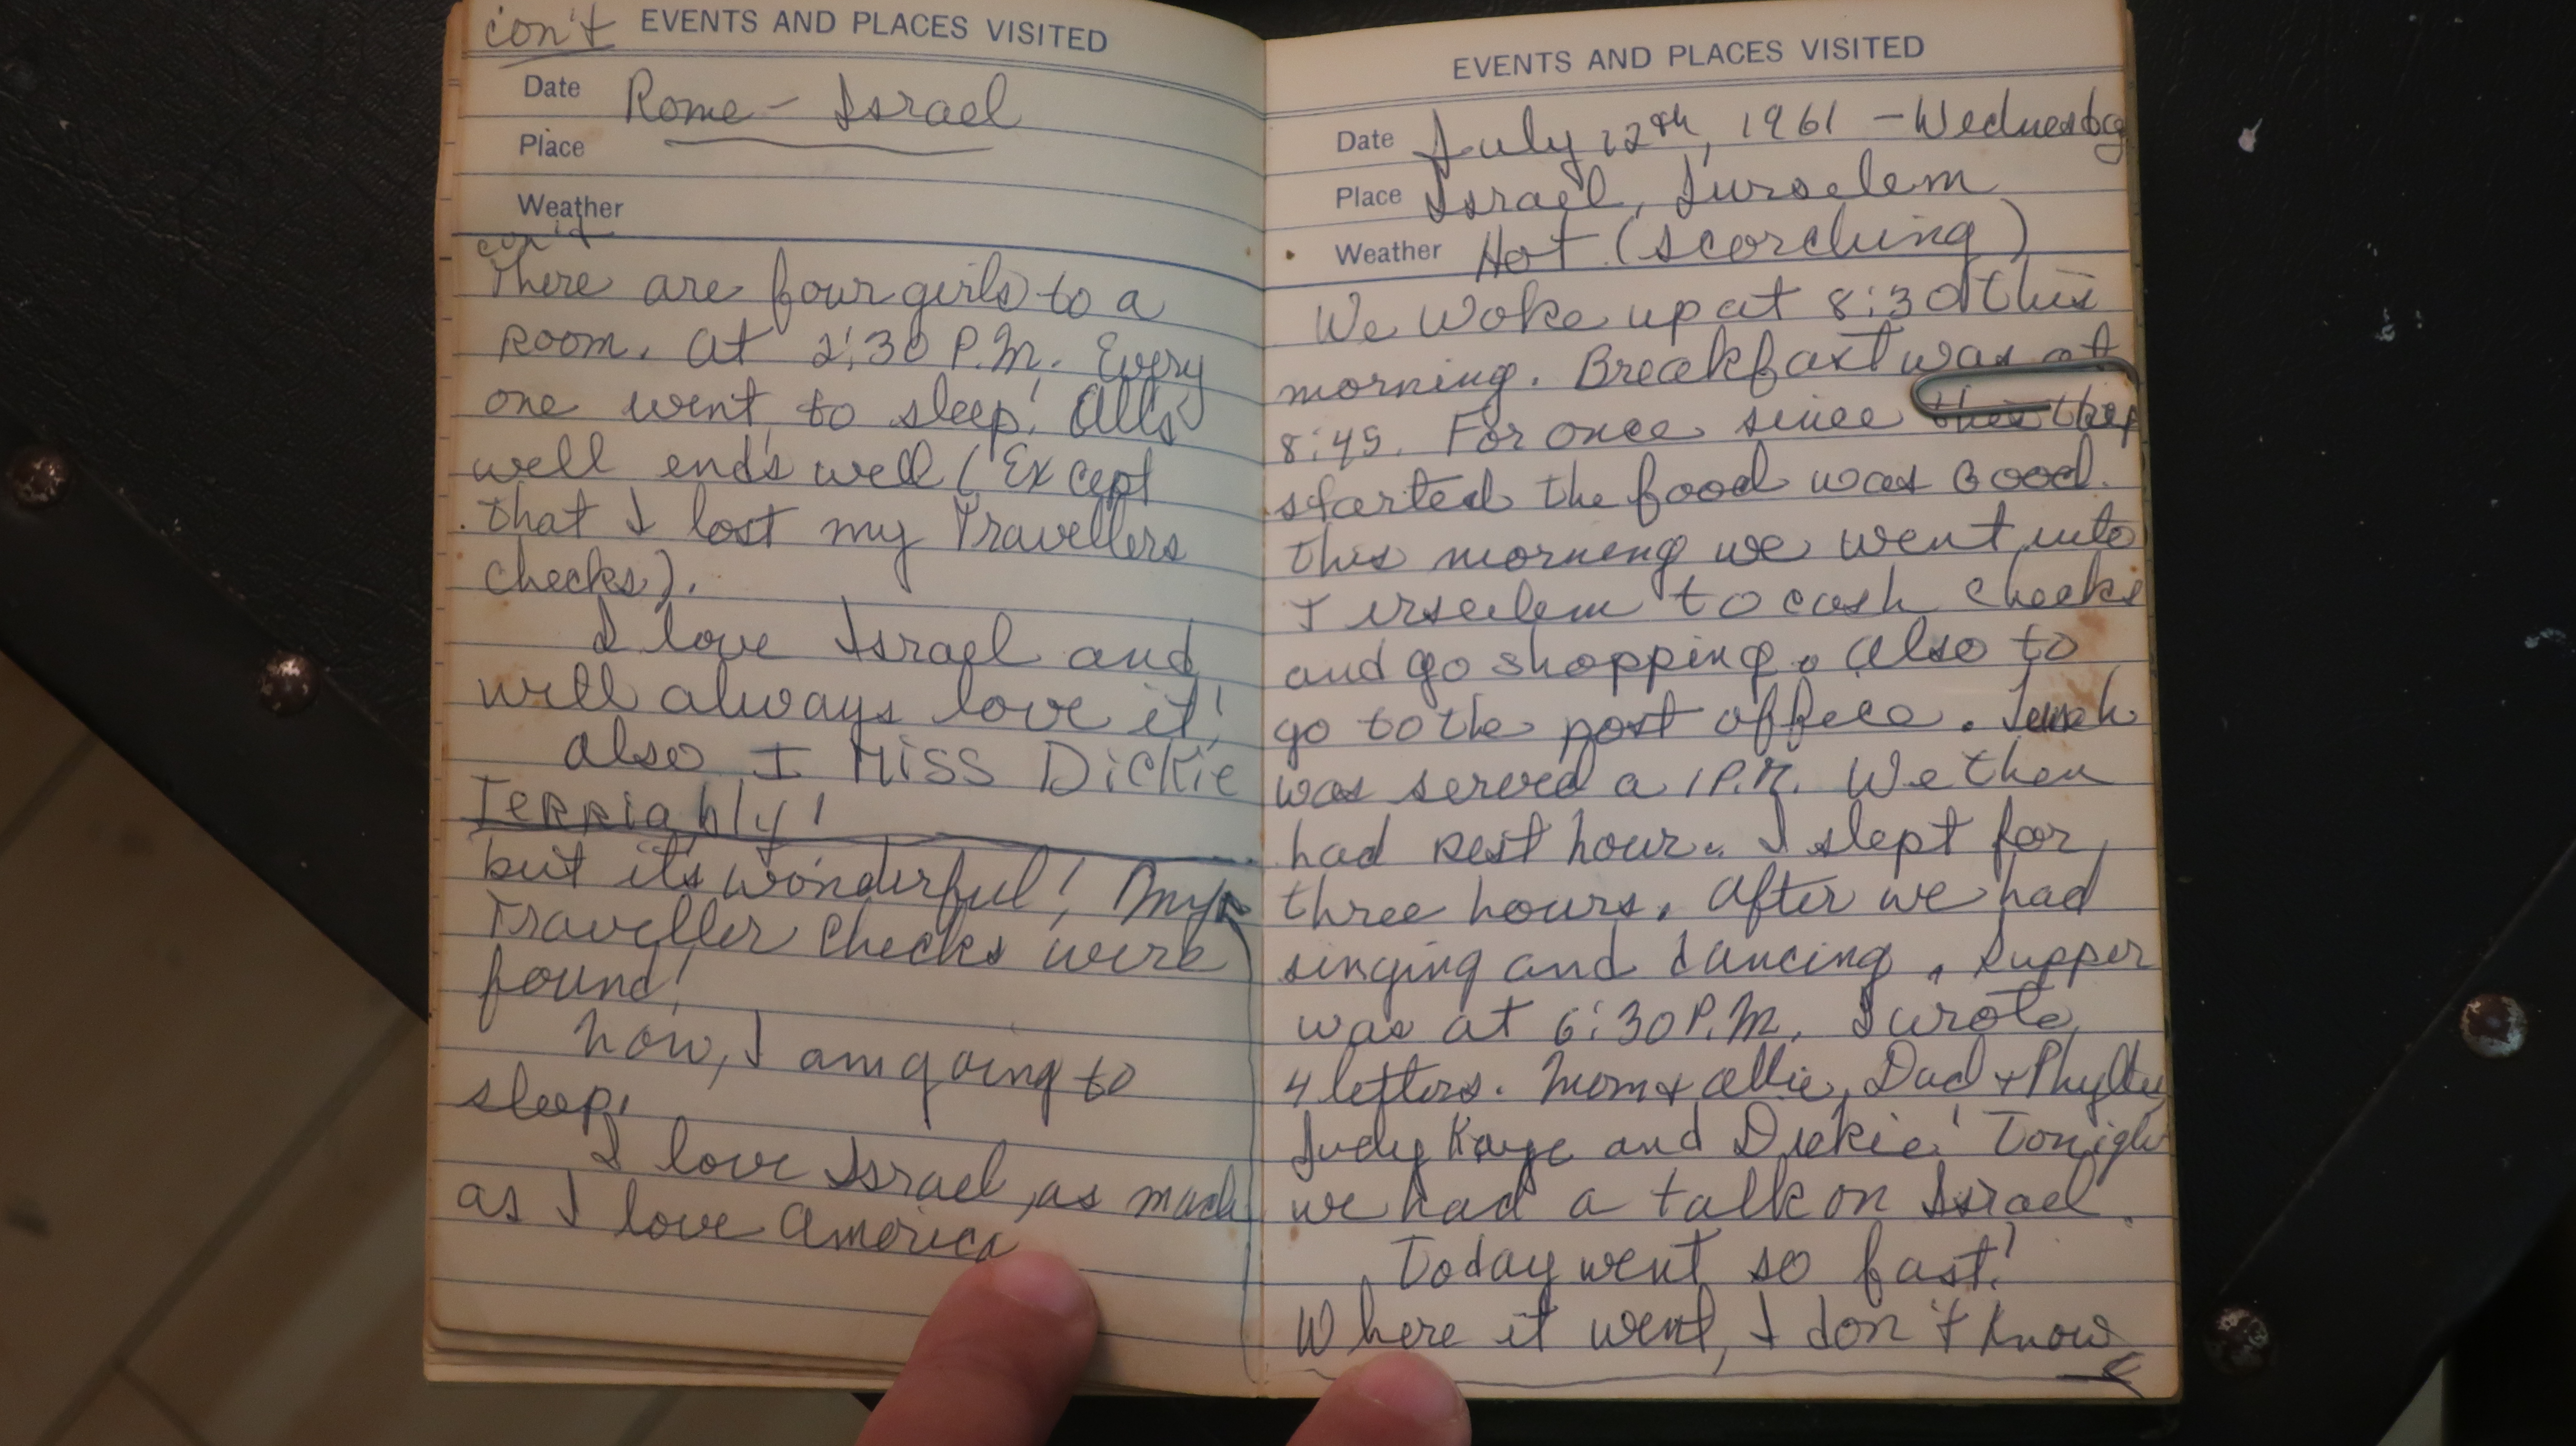 con't EVENTS AND PLACES VISITED
Date Rome - Israel
Place
Weather
con't
There are four girls to a
room. At 2:30 P.M. Every
one went to sleep! All's
well ends well (Except
that I lost my Travellers
checks).
I love Israel and
will always love it!
also I MISS DiCKiE
TERRiably!
but it's wonderful! My
Traveller checks were
found!
Now, I am going to
sleep.
I love Israel, as much
as I love America
EVENTS AND PLACES VISITED
Date July 12th, 1961 - Wednesday
Place Israel, Jurselem
Weather Hot (scorching)
We woke up at 8:30 this
morning. Breakfast was at
8:45. For once since this trip
started the food was Good.
this morning we went into
Jerselem to cash checks
and go shopping. Also to
go to the post office. Lunch
was served a 1 P.M. We then
had rest hour. I slept for
three hours. After we had
singing and dancing. Supper
was at 6:30 P.M. I wrote
4 letters. Mom + Allie, Dad +
Judy Kaye and Dickie! Tonight
we had a talk on Israel.
Today went so fast!
Where it went, I don't know